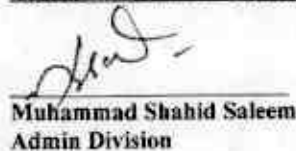 Muhammad Shahid Saleem
Admin Division